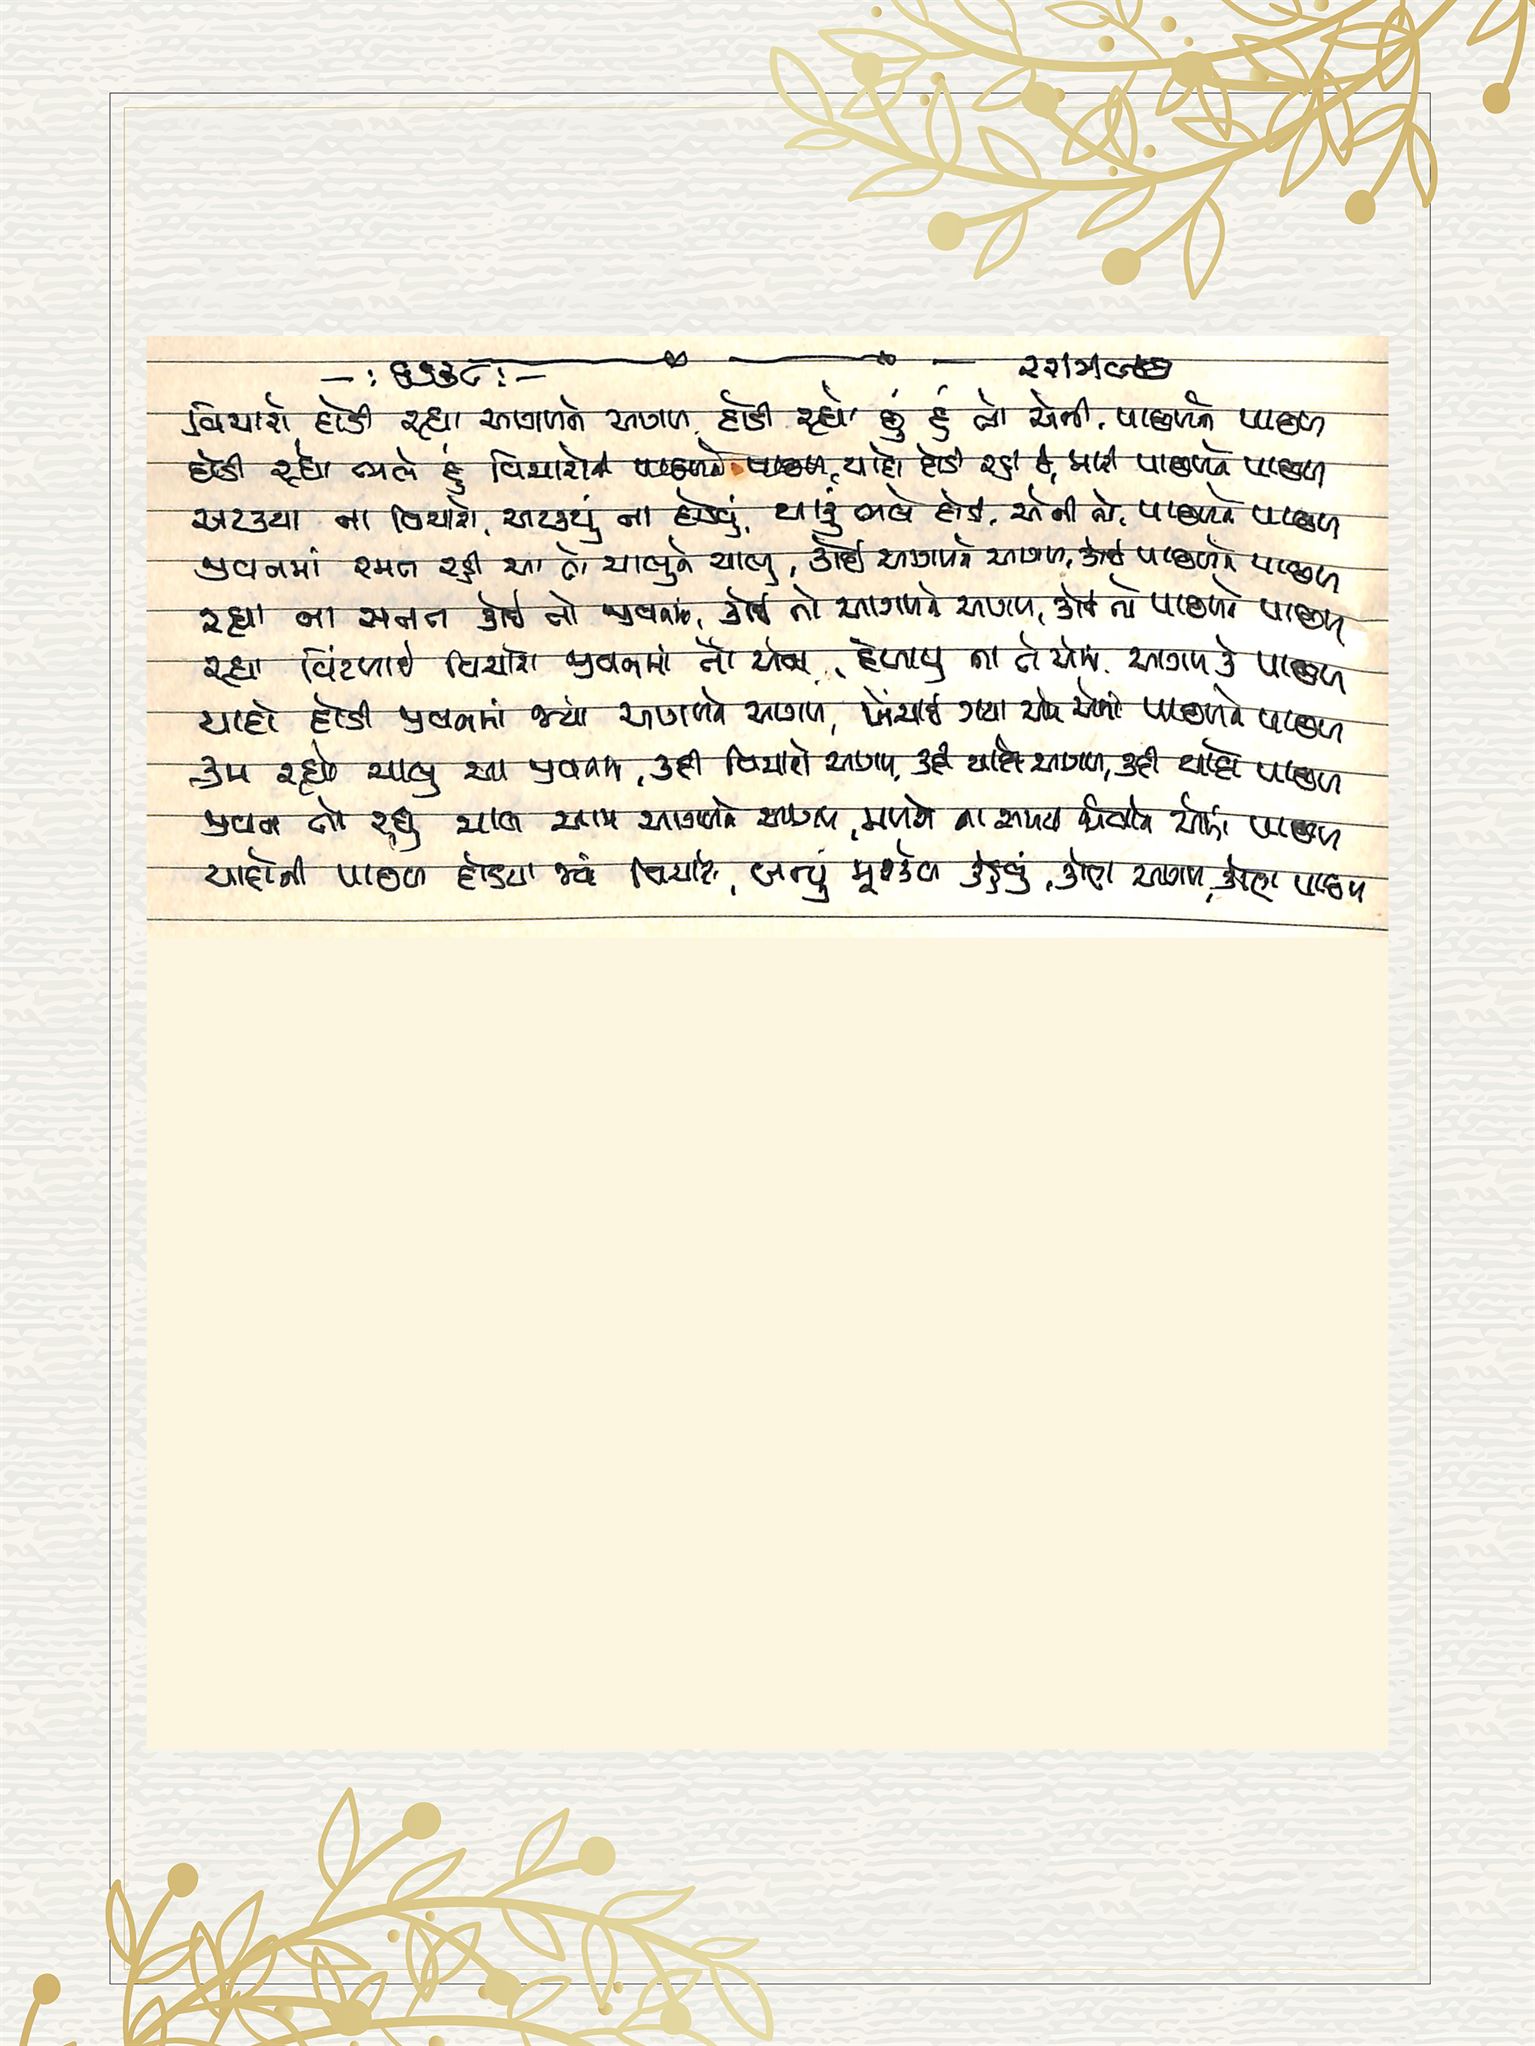 વિચારો દોડી રહ્યા આગળને આગળ, દોડી રહ્યો છું હું તો એની, પાછળને પાછળ
દોડી રહ્યો ભલે હું વિચારોની પાછળને પાછળ, યાદો દોડી રહી છે, મારી પાછળને પાછળ
અટક્યા ના વિચારો, અટક્યું ના દોડવું, યાદું ભલે દોડે, એની તો, પાછળને પાછળ
જીવનમાં રમત રહી આ તો ચાલુને ચાલુ, કોઈ આગળને આગળ, કોઈ પાછળને પાછળ
રહ્યા ના સતત કોઈ તો જીવનમાં, કોઈ તો આગળને આગળ, કોઈ તો પાછળને પાછળ
રહ્યા વિંટળાઈ વિચારો જીવનમાં તો એવા, દેખાયું ના તે એમાં, આગળ કે પાછળ
યાદો દોડી જીવનમાં જ્યાં આગળને આગળ, ખેંચાઈ ગયા એમ એની પાછળને પાછળ
ક્રમ રહ્યો ચાલુ આ જીવનમાં, કદી વિચારો આગળ, કદી યાદો આગળ, કદી યાદો પાછળ
જીવન તો રહ્યું ચાલ આમ આગળને આગળ, મળશે ના સમય એમાં પાછળ
યાદોની પાછળ દોડયા જ્યાં વિચારો, બન્યું મુશ્કેલ કહેવું, કોણ આગળ, કોણ પાછળ